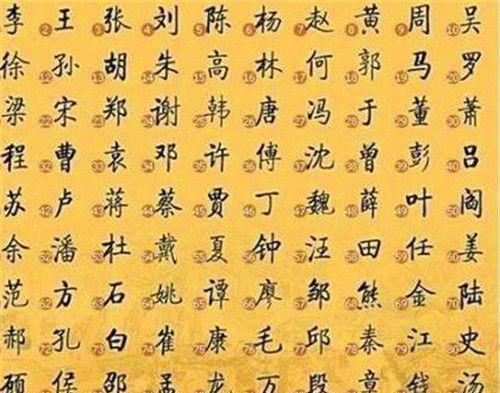 李 2 王 3 张 4 刘 5 陈 6 杨 7 赵 8 黄 9 周 10 吴
徐 12 孙 13 胡 14 朱 15 高 16 林 17 何 18 郭 19 马 20 罗
梁 22 宋 23 郑 24 谢 25 韩 26 唐 27 冯 28 于 29 董 30 萧
程 32 曹 33 袁 34 邓 35 许 36 傅 37 沈 38 曾 39 彭 40 吕
苏 42 卢 43 蒋 44 蔡 45 贾 46 丁 47 魏 48 薛 49 叶 50 阎
余 52 潘 53 杜 54 戴 55 夏 56 钟 57 汪 58 田 59 任 60 姜
范 62 方 63 石 64 姚 65 谭 66 廖 67 邹 68 熊 69 金 70 陆
郝 72 孔 73 白 74 崔 75 康 76 毛 77 邱 78 秦 79 江 80 史
顾 侯 邵 孟 龙 万 段 章 钱 汤